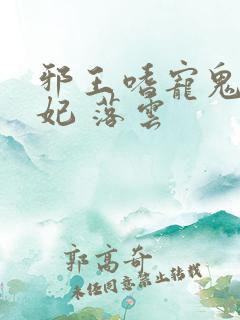 邪王嗜寵鬼
妃 落雲
郭高奇
未经同意禁止转载